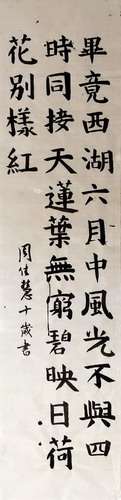 畢竟西湖六月中風光不與四
時同接天蓮葉無窮碧映日荷
花別樣紅
周佳慧十歲書